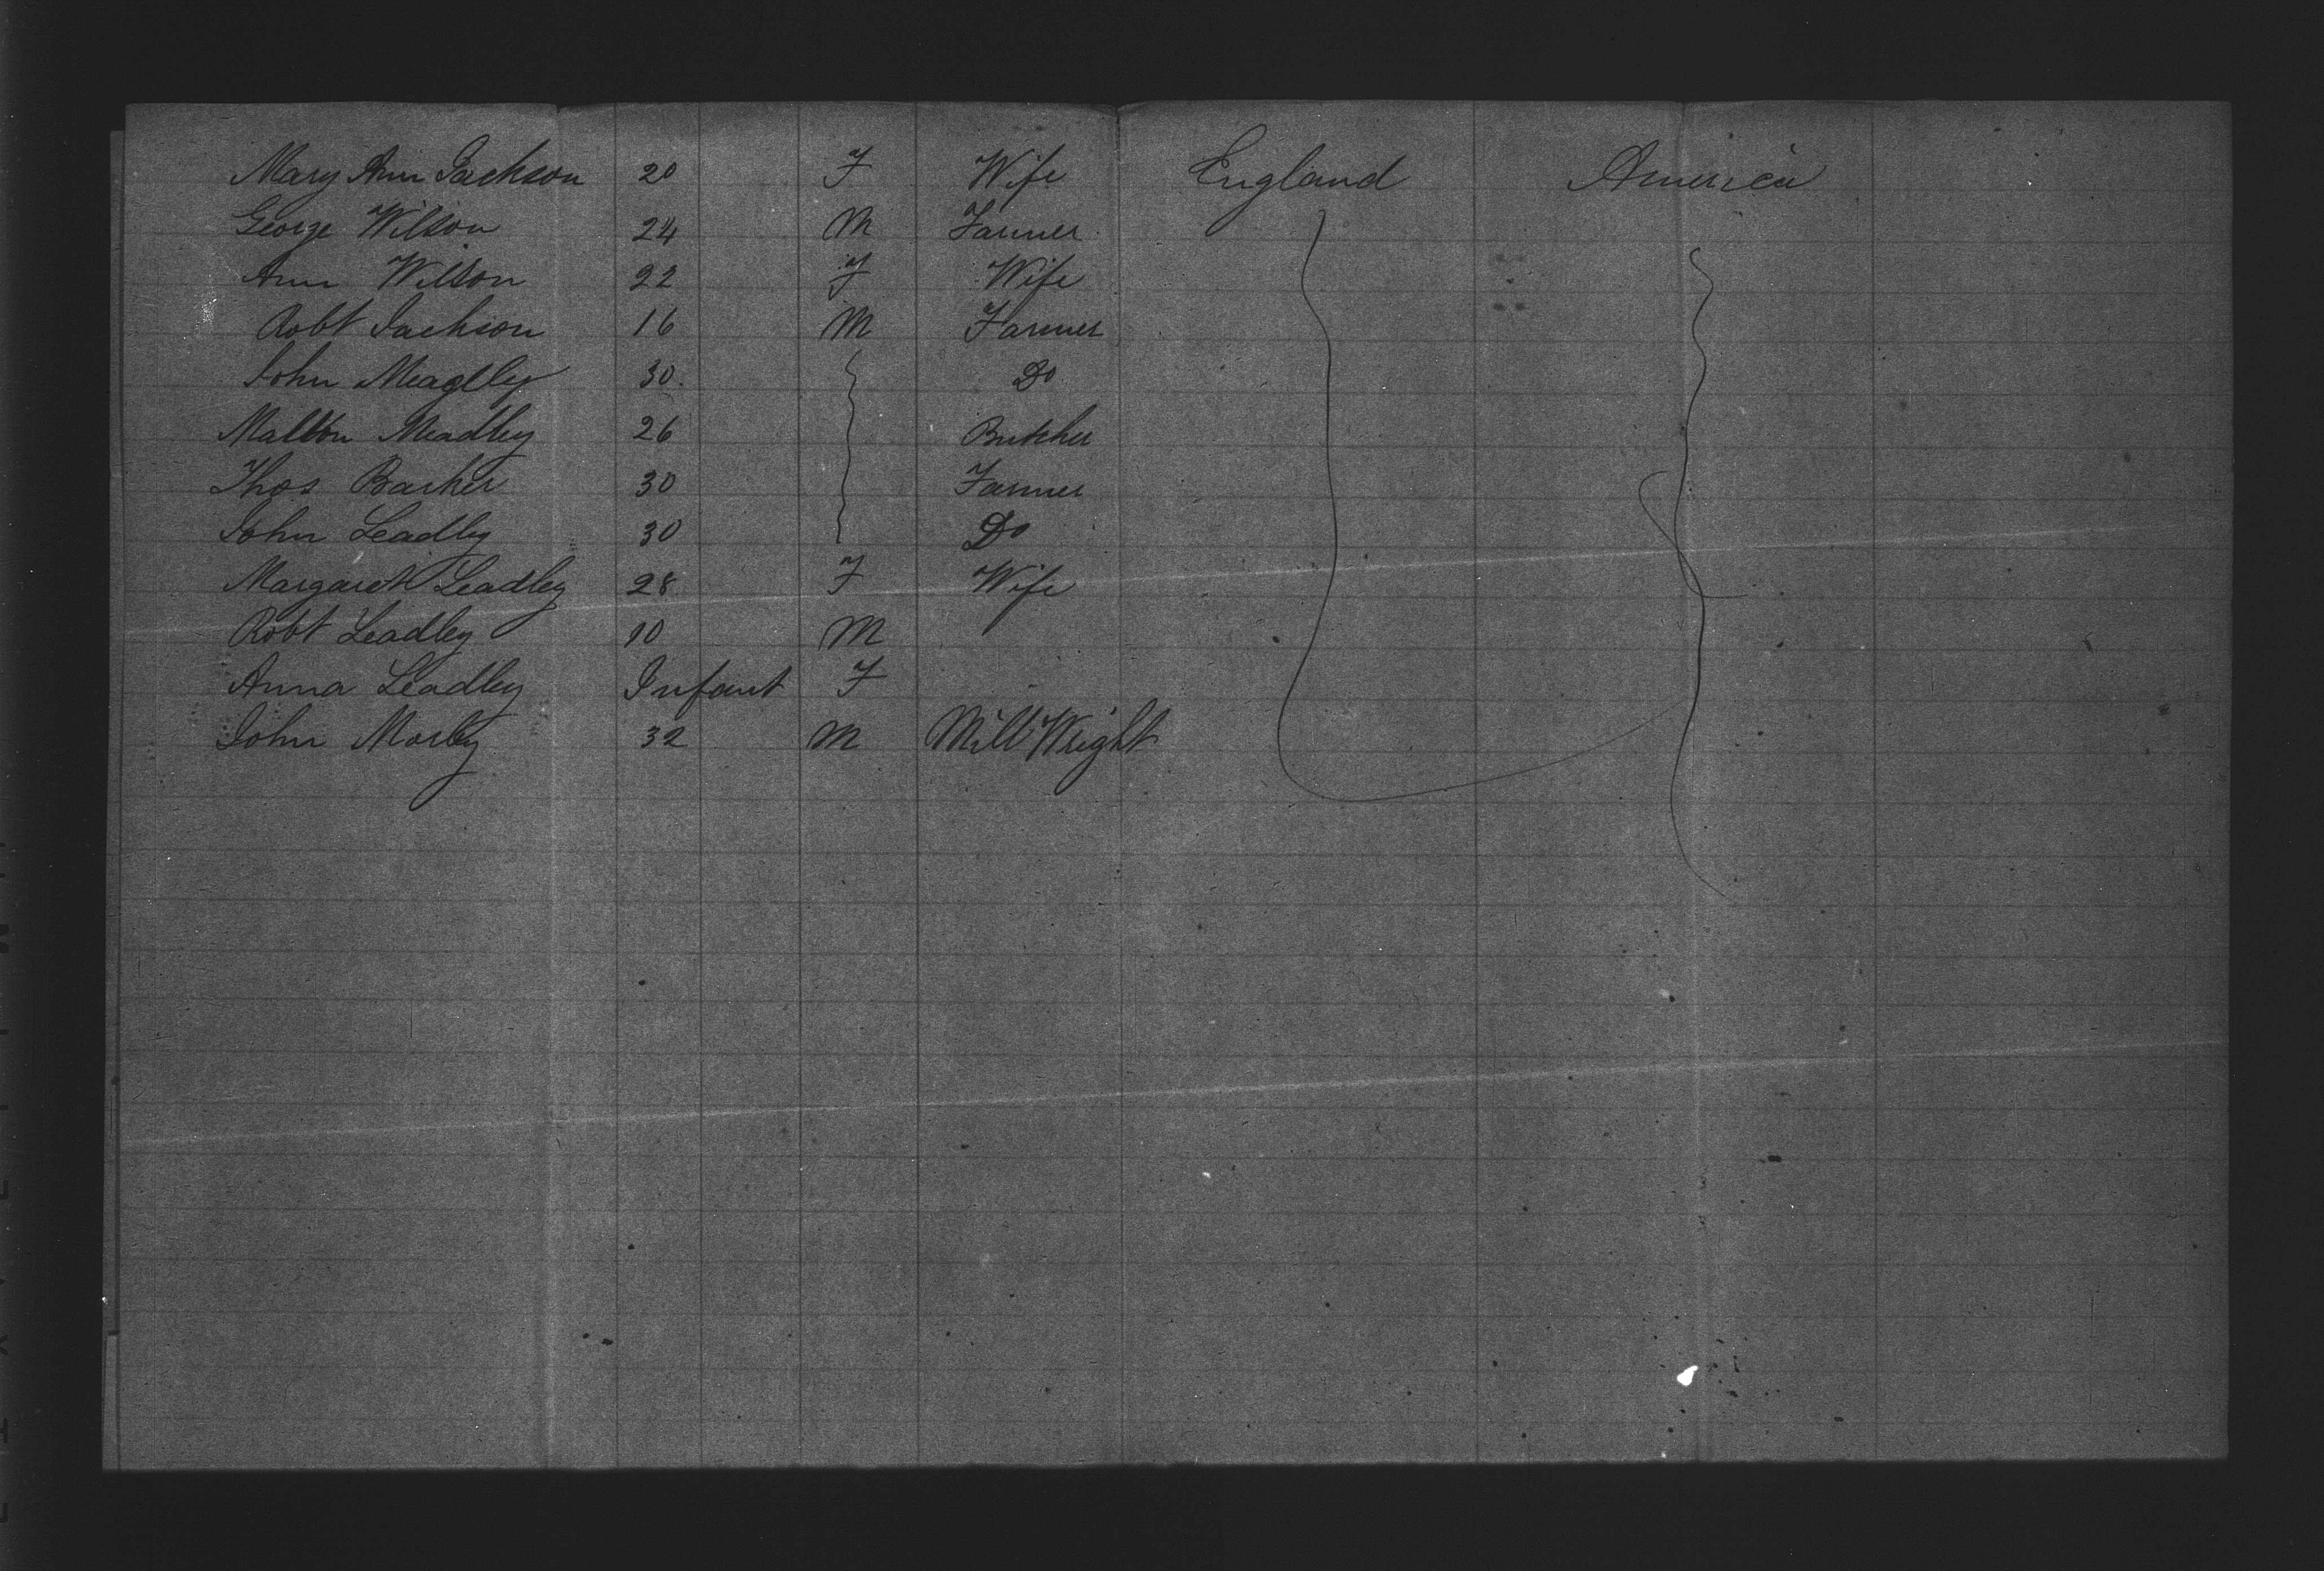 Mary Ann Jackson 20 F Wife England America
George Wilson 24 M Farmer
Ann Wilson 22 F Wife
Robt Jackson 16 M Farmer
John Meadley 30 Do
Malton Meadley 26 Butcher
Thos Barker 30 Farmer
John Leadley 30 Do
Margaret Leadley 28 F Wife
Robt Leadley 10 M
Anna Leadley Infant F
John Morley 32 M Mill Wright